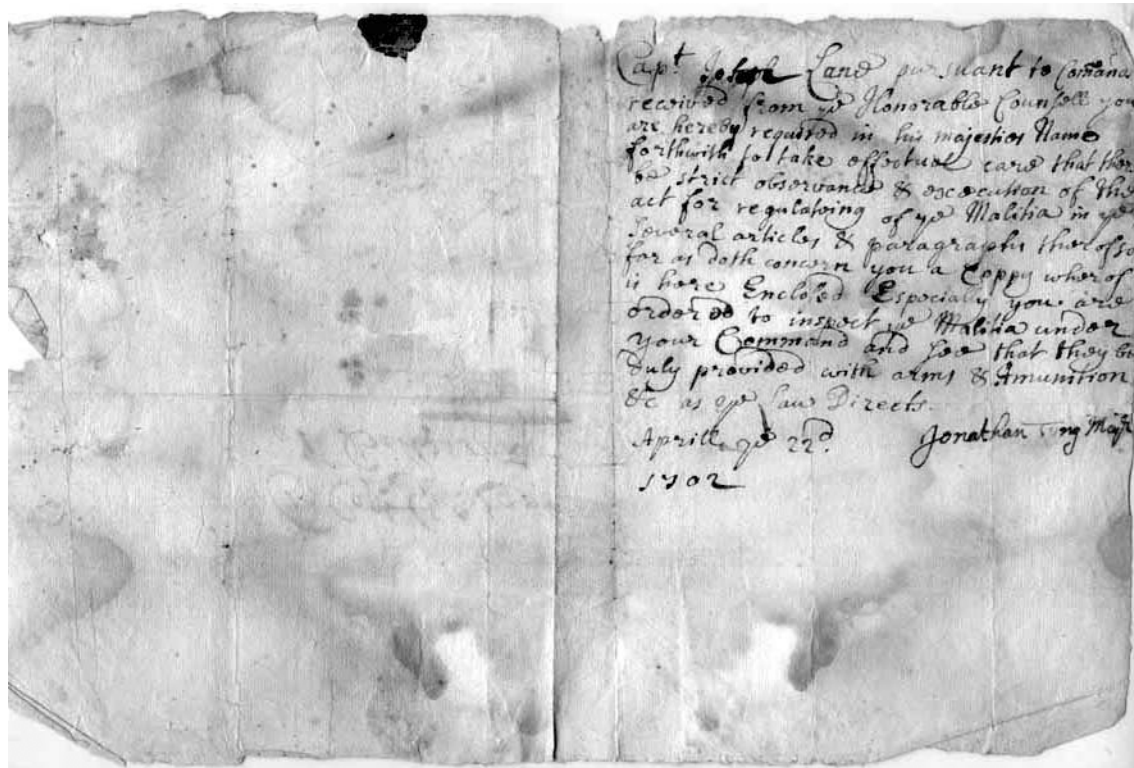 Capt. Joseph Lane pursuant to Comand
received from ye Honorable Counsell you
are hereby required in his majesties Name
forthwith to take effectuel care that ther
be strict observance & execution of the
act for regulateing of ye Malitia in ye
several articles & paragraphs therof so
far as doth concern you a Coppy wherof
is here Enclosed Especially you are
ordered to inspect ye Malitia under
your Command and see that they be
duly provided with arms & Amunition
&c as ye law Directs.
Aprill ye 22d. Jonathan Tyng Majr
1702